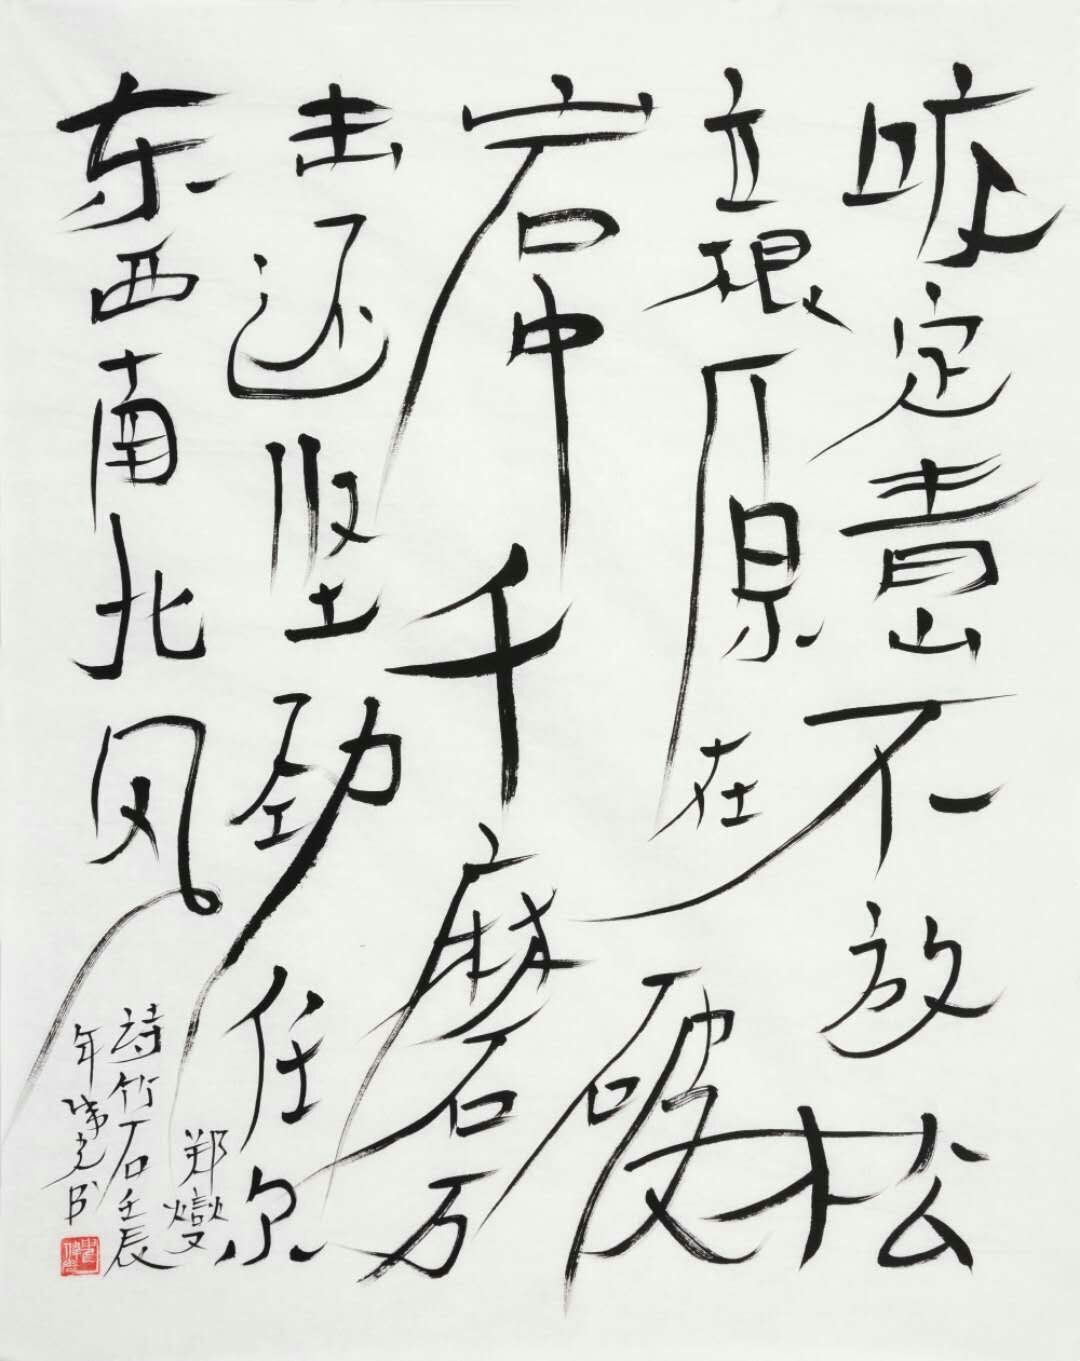 咬定青山不放松
立根原在破
岩中千磨万
击还坚劲任尔
东西南北风
郑燮
詩竹石壬辰
年书